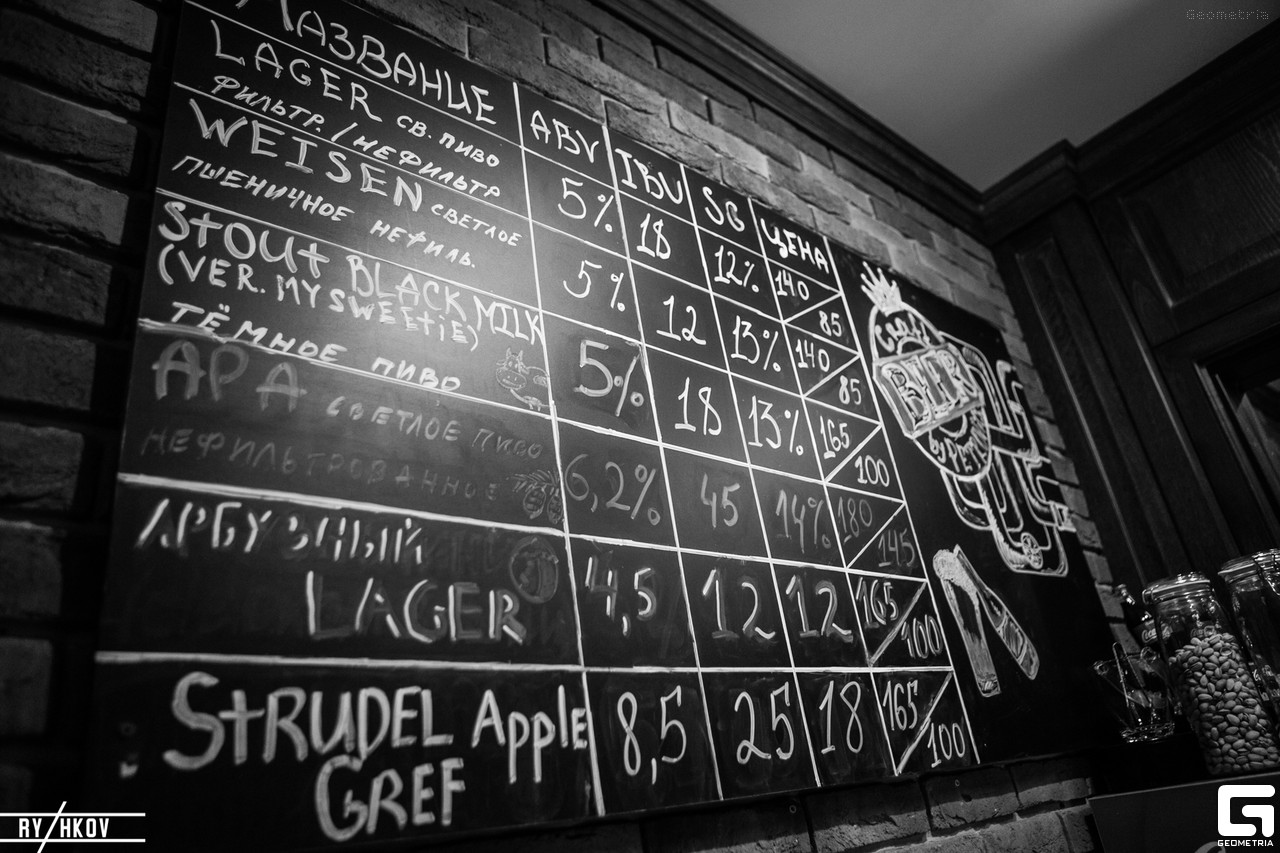 Geometria
НАЗВАНИЕ ABV IBU SG ЦЕНА
LAGER св. пиво
фильтр./нефильтр 5% 18 12% 140 85
WEISEN светлое
пшеничное нефиль. 5% 12 13% 140 85
Stout BLACK MILK
(VER. MY SWEETiE)
тёмное пиво 5% 18 13% 165 100
APA светлое пиво
нефильтрованное 6,2% 45 14% 180 145
АРБУЗНЫЙ
LAGER 4,5 12 12 165 100
StRUDEL Apple
GREF 8,5 25 18 165 100
Craft
BEER
RY/HKOV
GEOMETRIA